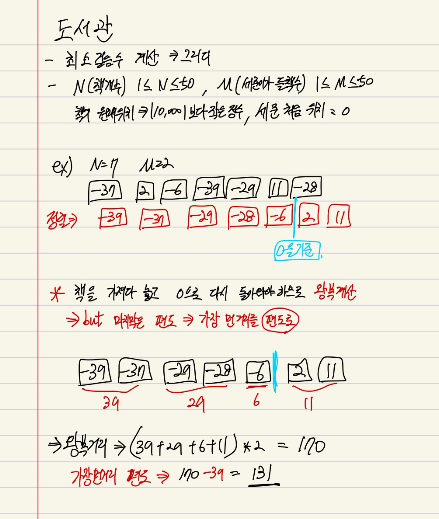 도서관
- 최소 걸음수 계산 ⇒ 그리디
- N(책개수) 1≤N≤50 , M(세준이가 들 책수) 1≤M≤50
책의 원래위치 ⇒ |10,000|보다 작은 정수, 세준 처음 위치 = 0
ex) N=7 M=2
-37 2 -6 -39 -29 11 -28
정렬⇒ -39 -37 -29 -28 -6 2 11
0을 기준
* 책을 가져다 놓고 0으로 다시 돌아와야 하므로 왕복계산
⇒ but 마지막은 편도 ⇒ 가장 먼거리를 편도로
-39 -37 -29 -28 -6 2 11
39 29 6 11
⇒ 왕복거리 ⇒ (39+29+6+11)*2 = 170
가장먼거리 편도 ⇒ 170-39 = 131